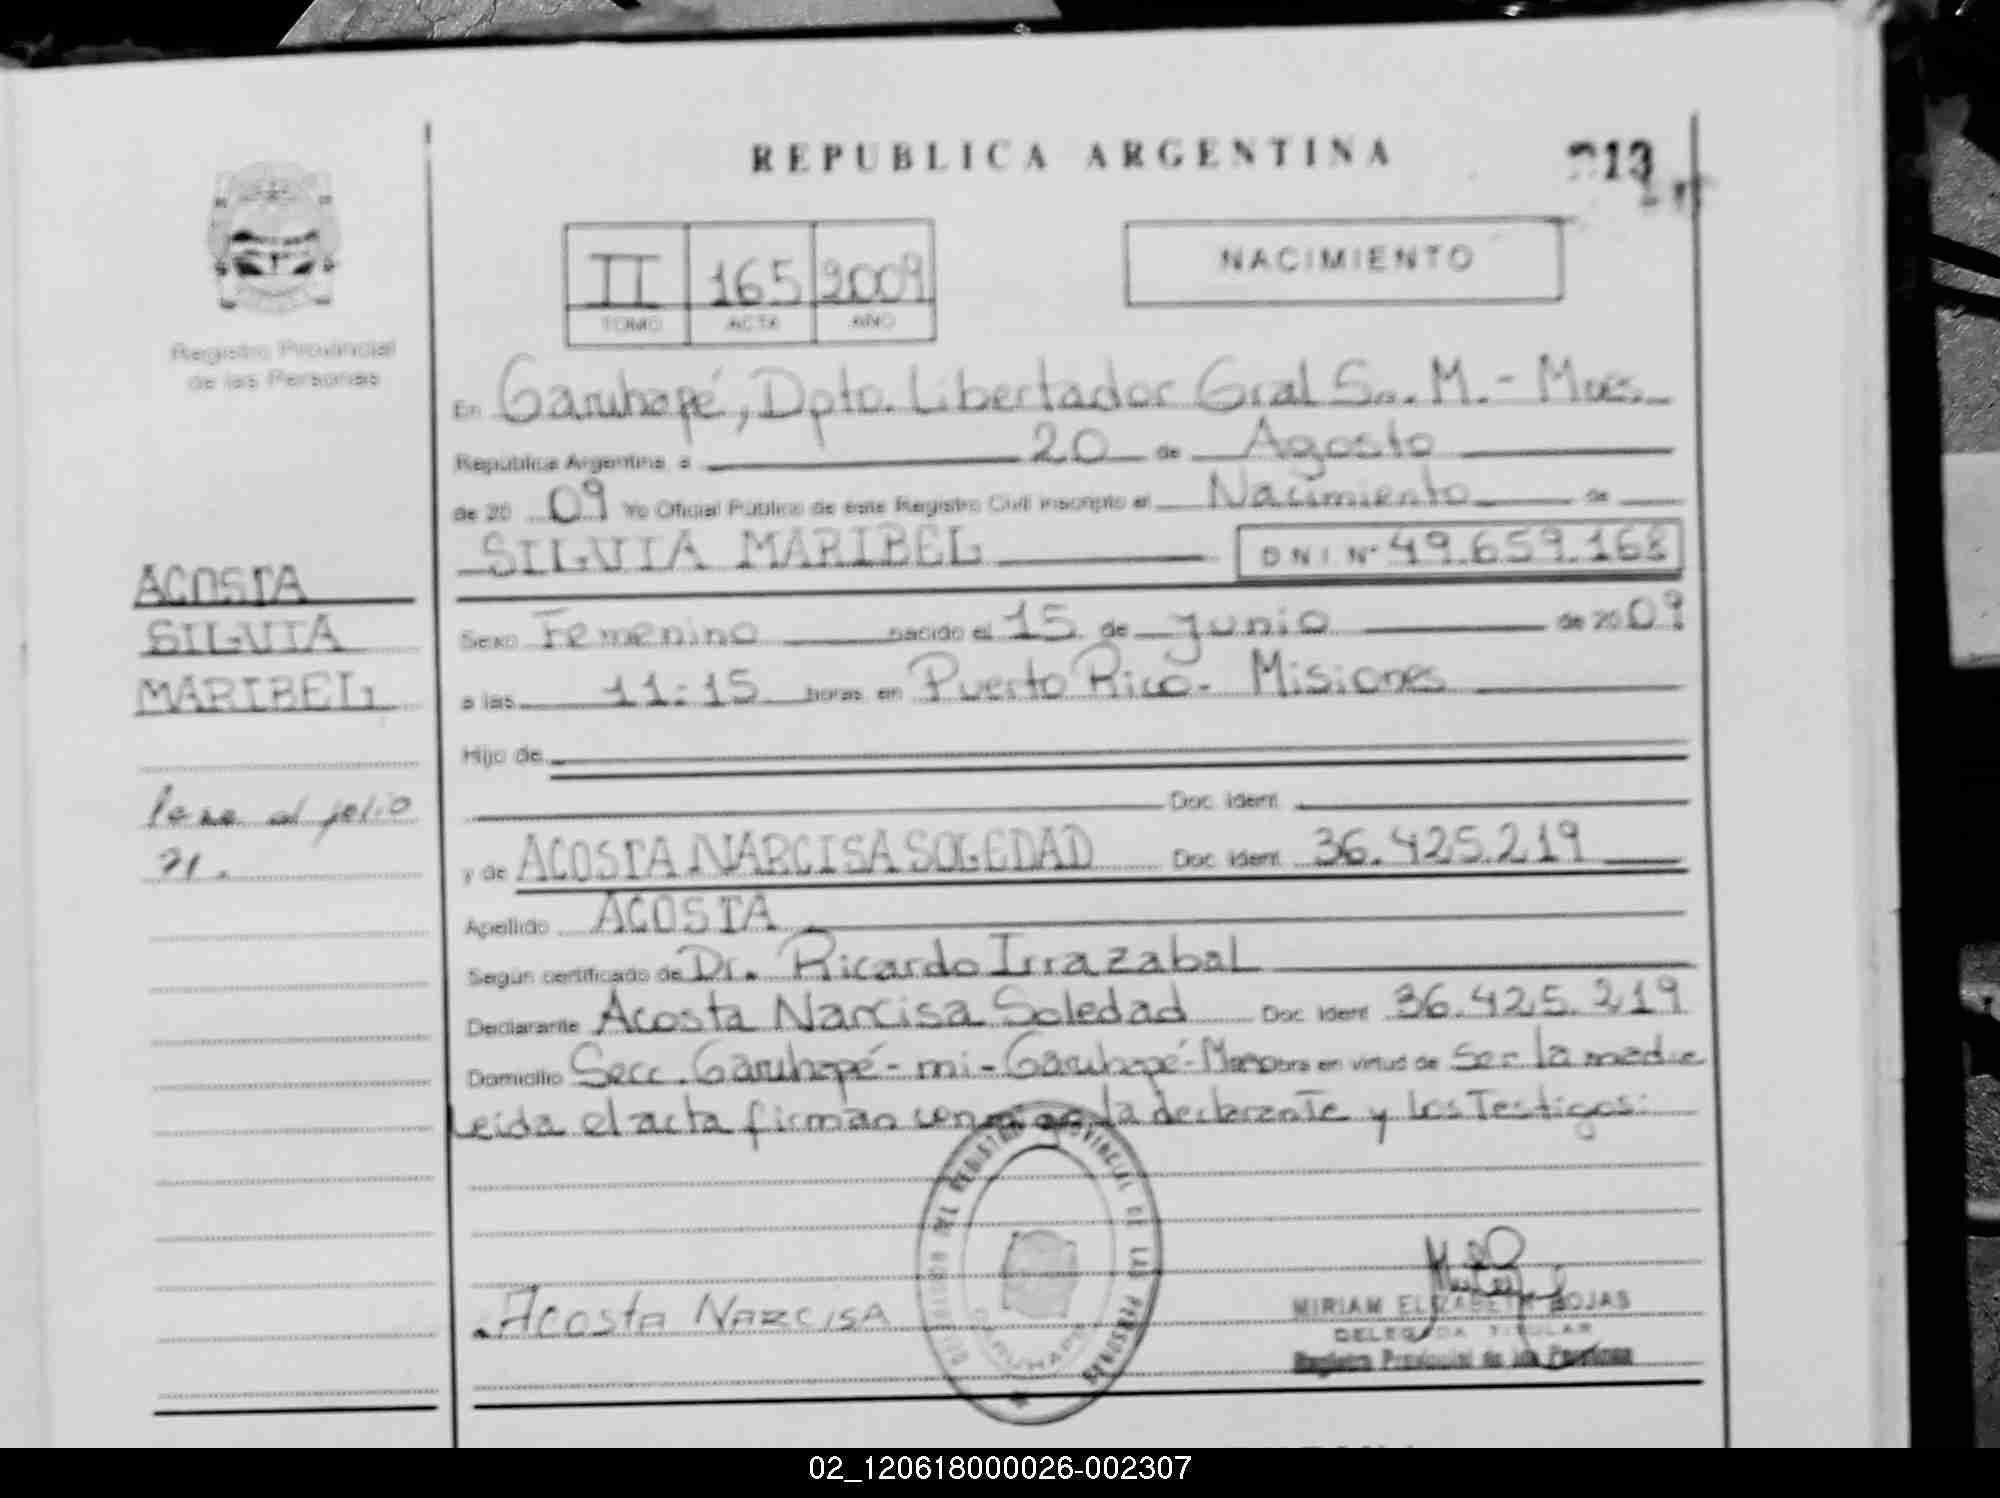 REPUBLICA ARGENTINA
213
II 165 2009
TOMO ACTA AÑO
NACIMIENTO
Registro Provincial
de las Personas
En Garuhapé, Dpto. Libertador Gral S. M. - Mnes.
República Argentina a 20 de Agosto
de 2009 Yo Oficial Público de este Registro Civil inscripto el Nacimiento de
SILVIA MARIBEL D N I N° 49.659.168
ACOSTA
SILVIA
MARIBEL
Sexo Femenino nacido el 15 de Junio de 2009
a las 11:15 horas en Puerto Rico - Misiones
Hijo de
Doc. Ident.
al folio
y de ACOSTA NARCISA SOLEDAD Doc. Ident. 36.425.219
Apellido ACOSTA
Según certificado de Dr. Ricardo Irrazabal
Declarante Acosta Narcisa Soledad Doc. Ident 36.425.219
Domicilio Secc. Garuhapé - mi - Garuhapé - obra en virtud de Ser la madre
Leida el acta firman conmigo la declarante y los Testigos.
REGISTRO PROVINCIAL DE LAS PERSONAS
GARUHAPE
Acosta NARCISA
MIRIAM ELIZABETH ROJAS
DELEGADA TITULAR
Registro Provincial de las Personas
02_120618000026-002307